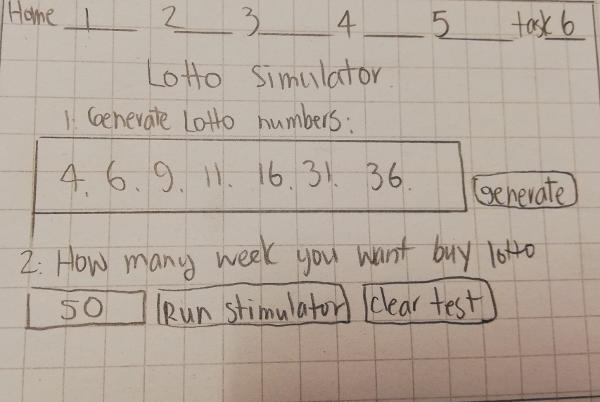 Home 1 2 3 4 5 task 6
Lotto simulator.
1. Generate Lotto numbers:
4. 6. 9. 11. 16. 31. 36.
generate
2. How many week you want buy lotto
50 Run stimulator clear test